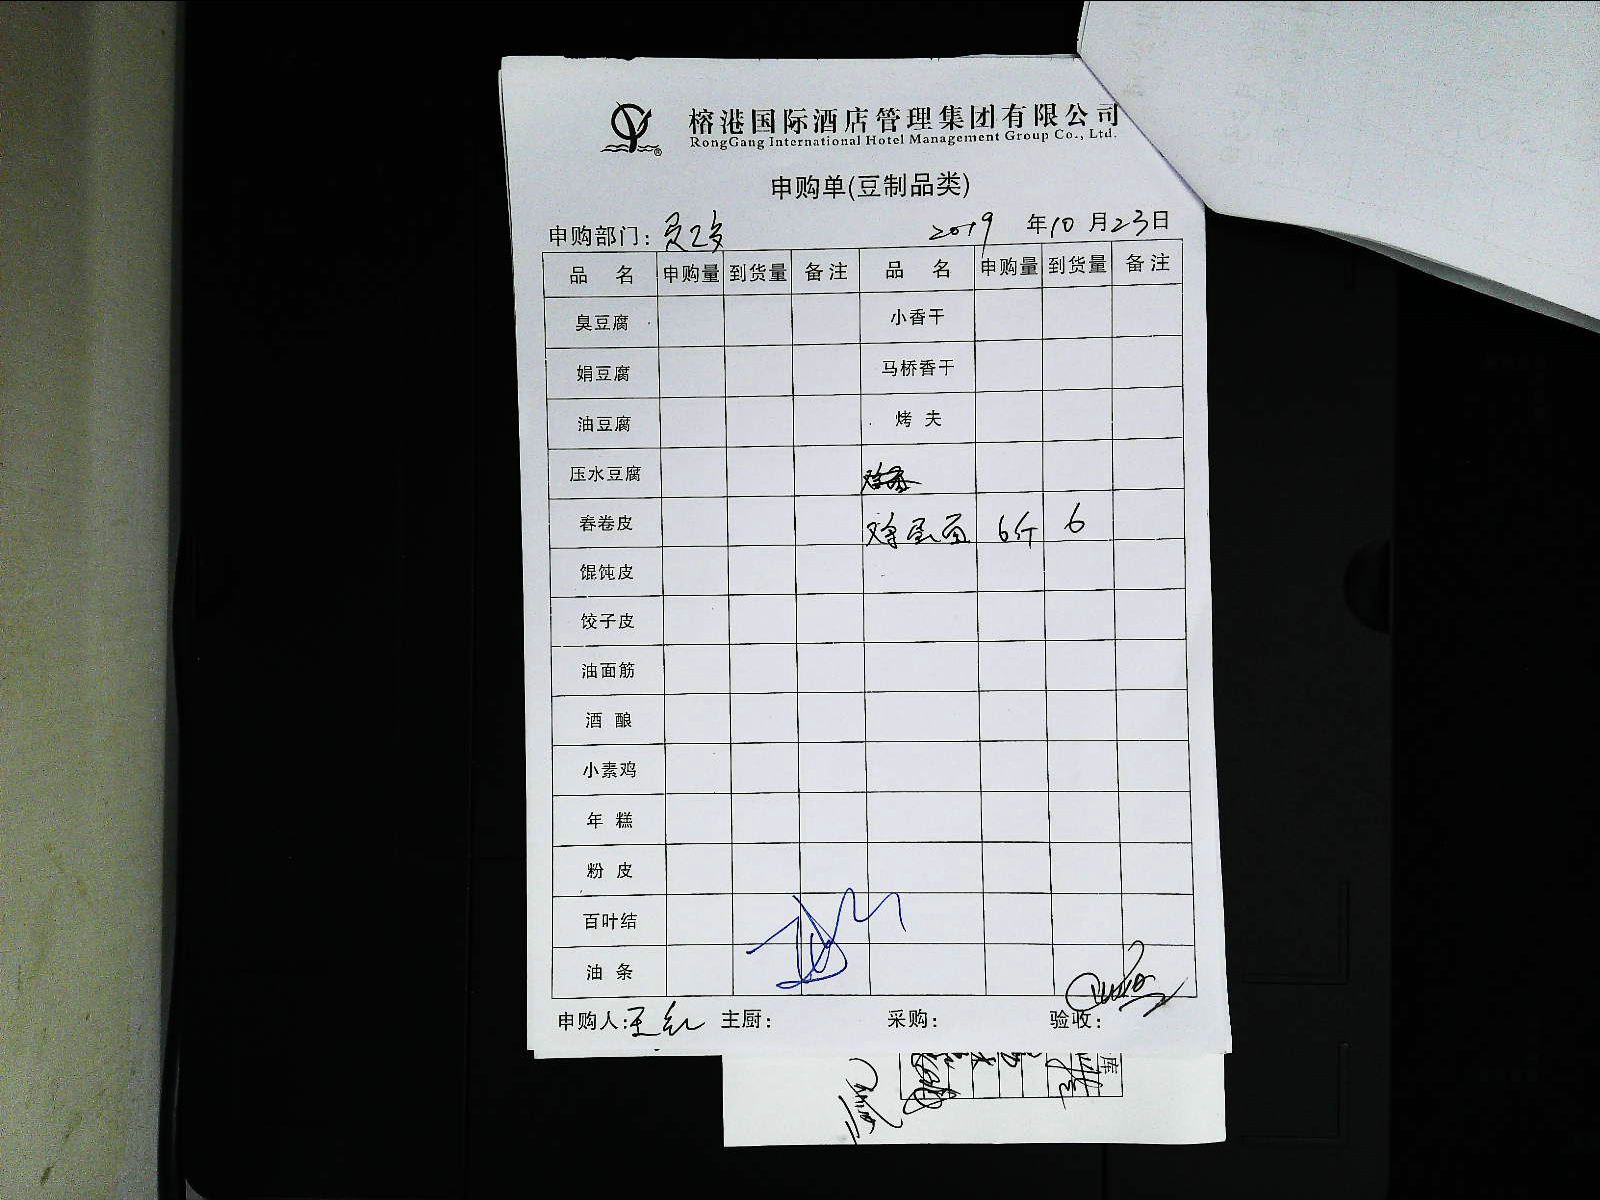 榕港国际酒店管理集团有限公司
RongGang International Hotel Management Group Co., Ltd.
申购单(豆制品类)
申购部门: 2019 年10月23日
品名 申购量 到货量 备注 品名 申购量 到货量 备注
臭豆腐 小香干
娟豆腐 马桥香干
油豆腐 烤夫
压水豆腐
春卷皮 鸡蛋面 6斤 6
馄饨皮
饺子皮
油面筋
酒酿
小素鸡
年糕
粉皮
百叶结
油条
申购人:王红 主厨: 采购: 验收:
库